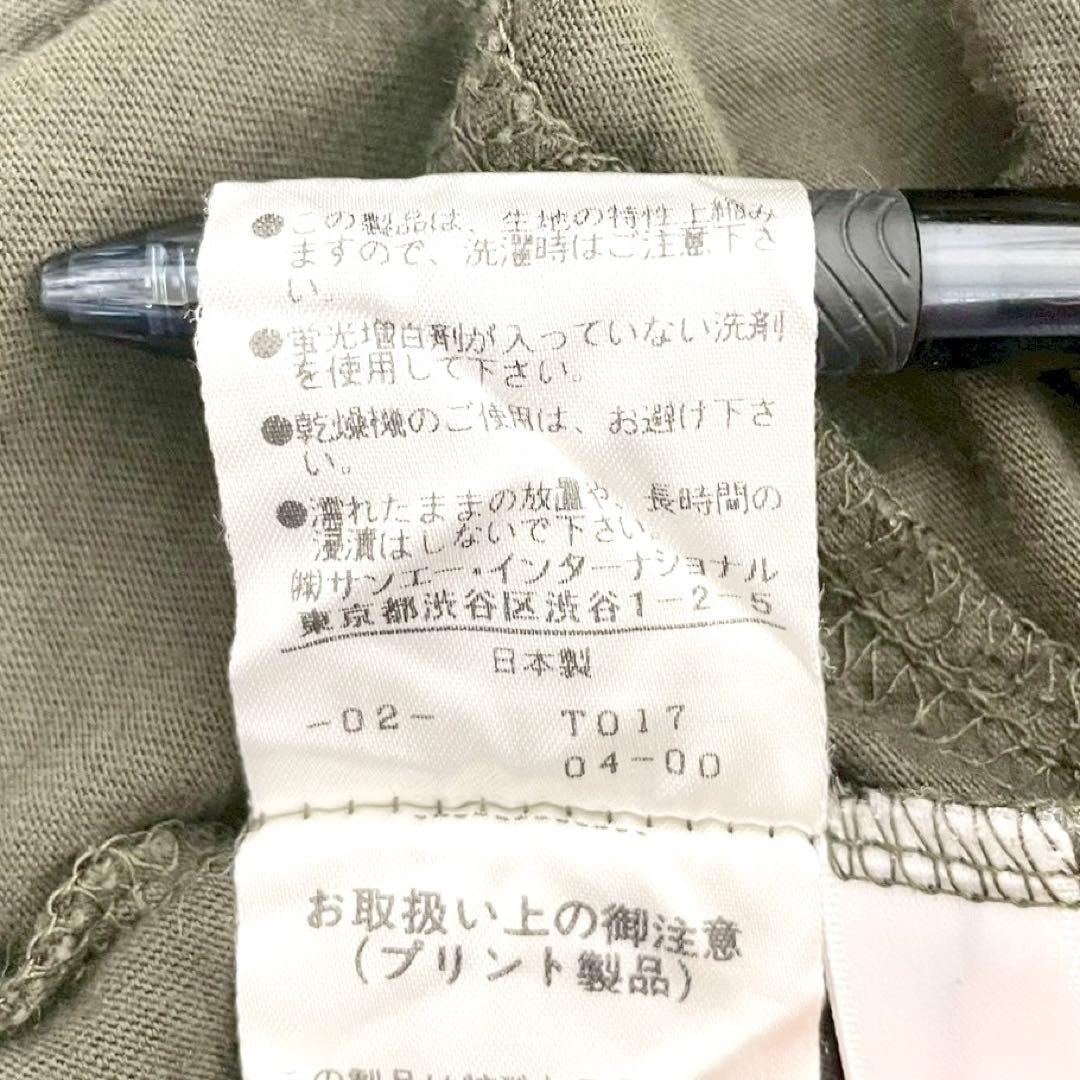 ●この製品は、生地の特性上縮み
ますので、洗濯時はご注意下さ
い。
●蛍光増白剤が入っていない洗剤
を使用して下さい。
●乾燥機のご使用は、お避け下さ
い。
●濡れたままの放置や、長時間の
浸漬はしないで下さい。
㈱サンエー・インターナショナル
東京都渋谷区渋谷1-2-5
日本製
-02- T017
04-00
お取扱い上の御注意
(プリント製品)
この製品は特殊